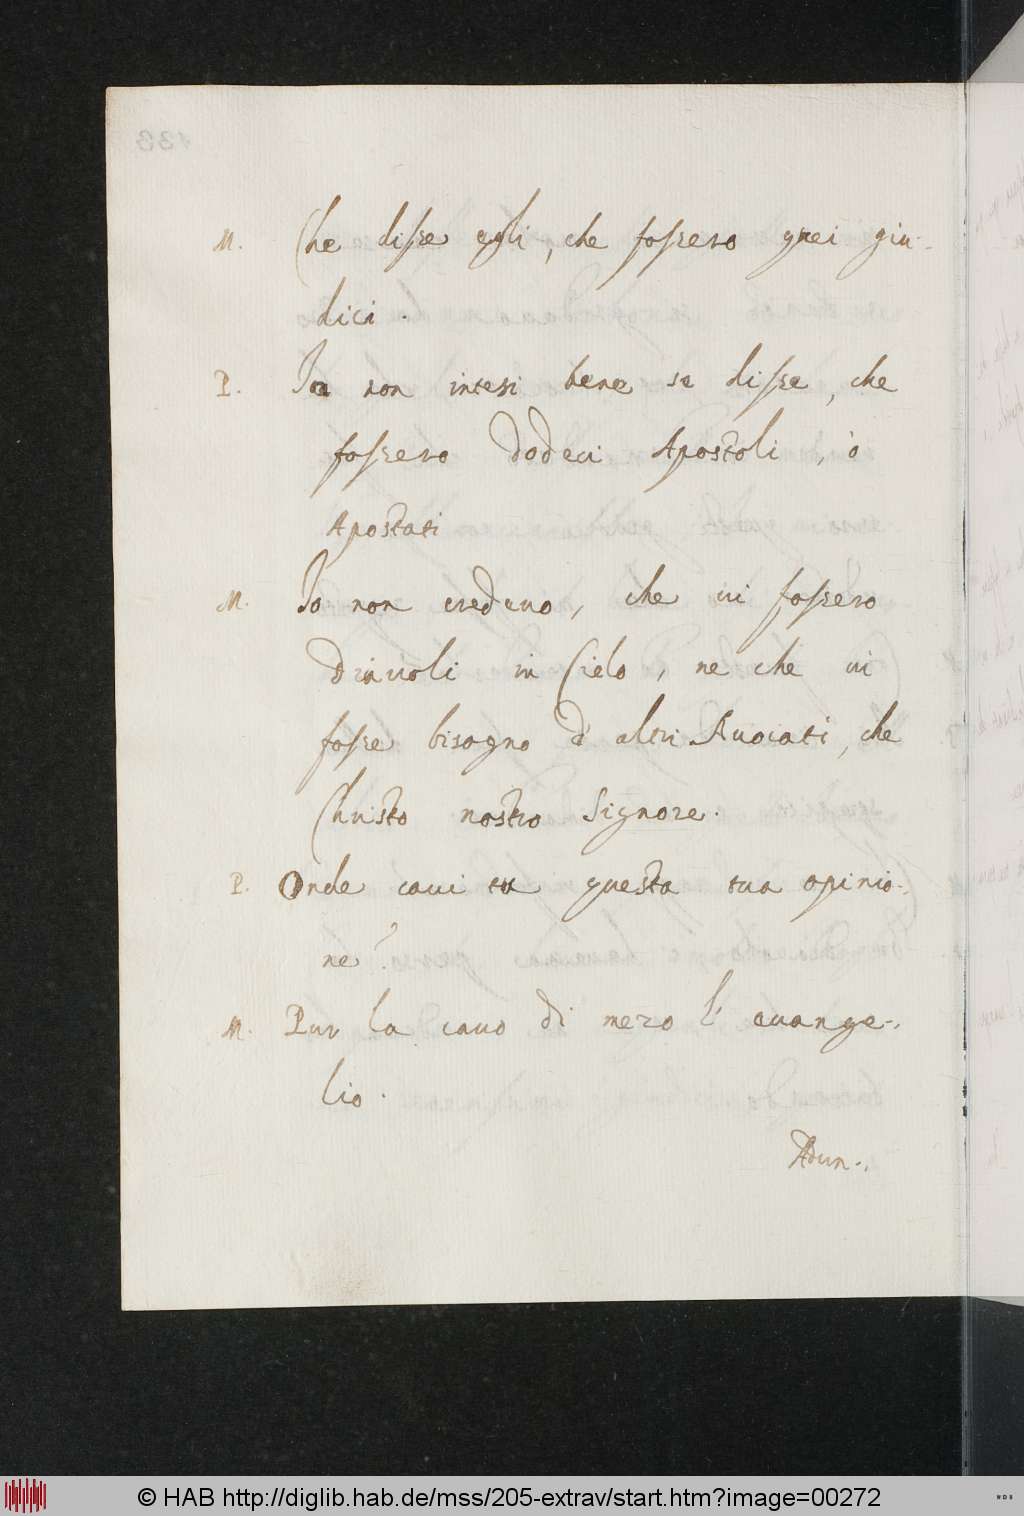 M. Che disse egli, che fossero quei giu-
dici.
P. Io non intesi bene se disse, che
fossero dodeci Apostoli, ò
Apostati
M. Io non credeuo, che ui fossero
Diauoli in Cielo, ne che ui
fosse bisogno d'altri Auocati, che
Christo nostro Signore.
P. Onde caui tu questa tua opinio-
ne?
M. Pur la cauo di mezo l'euange-
lio.
Adun-
© HAB http://diglib.hab.de/mss/205-extrav/start.htm?image=00272